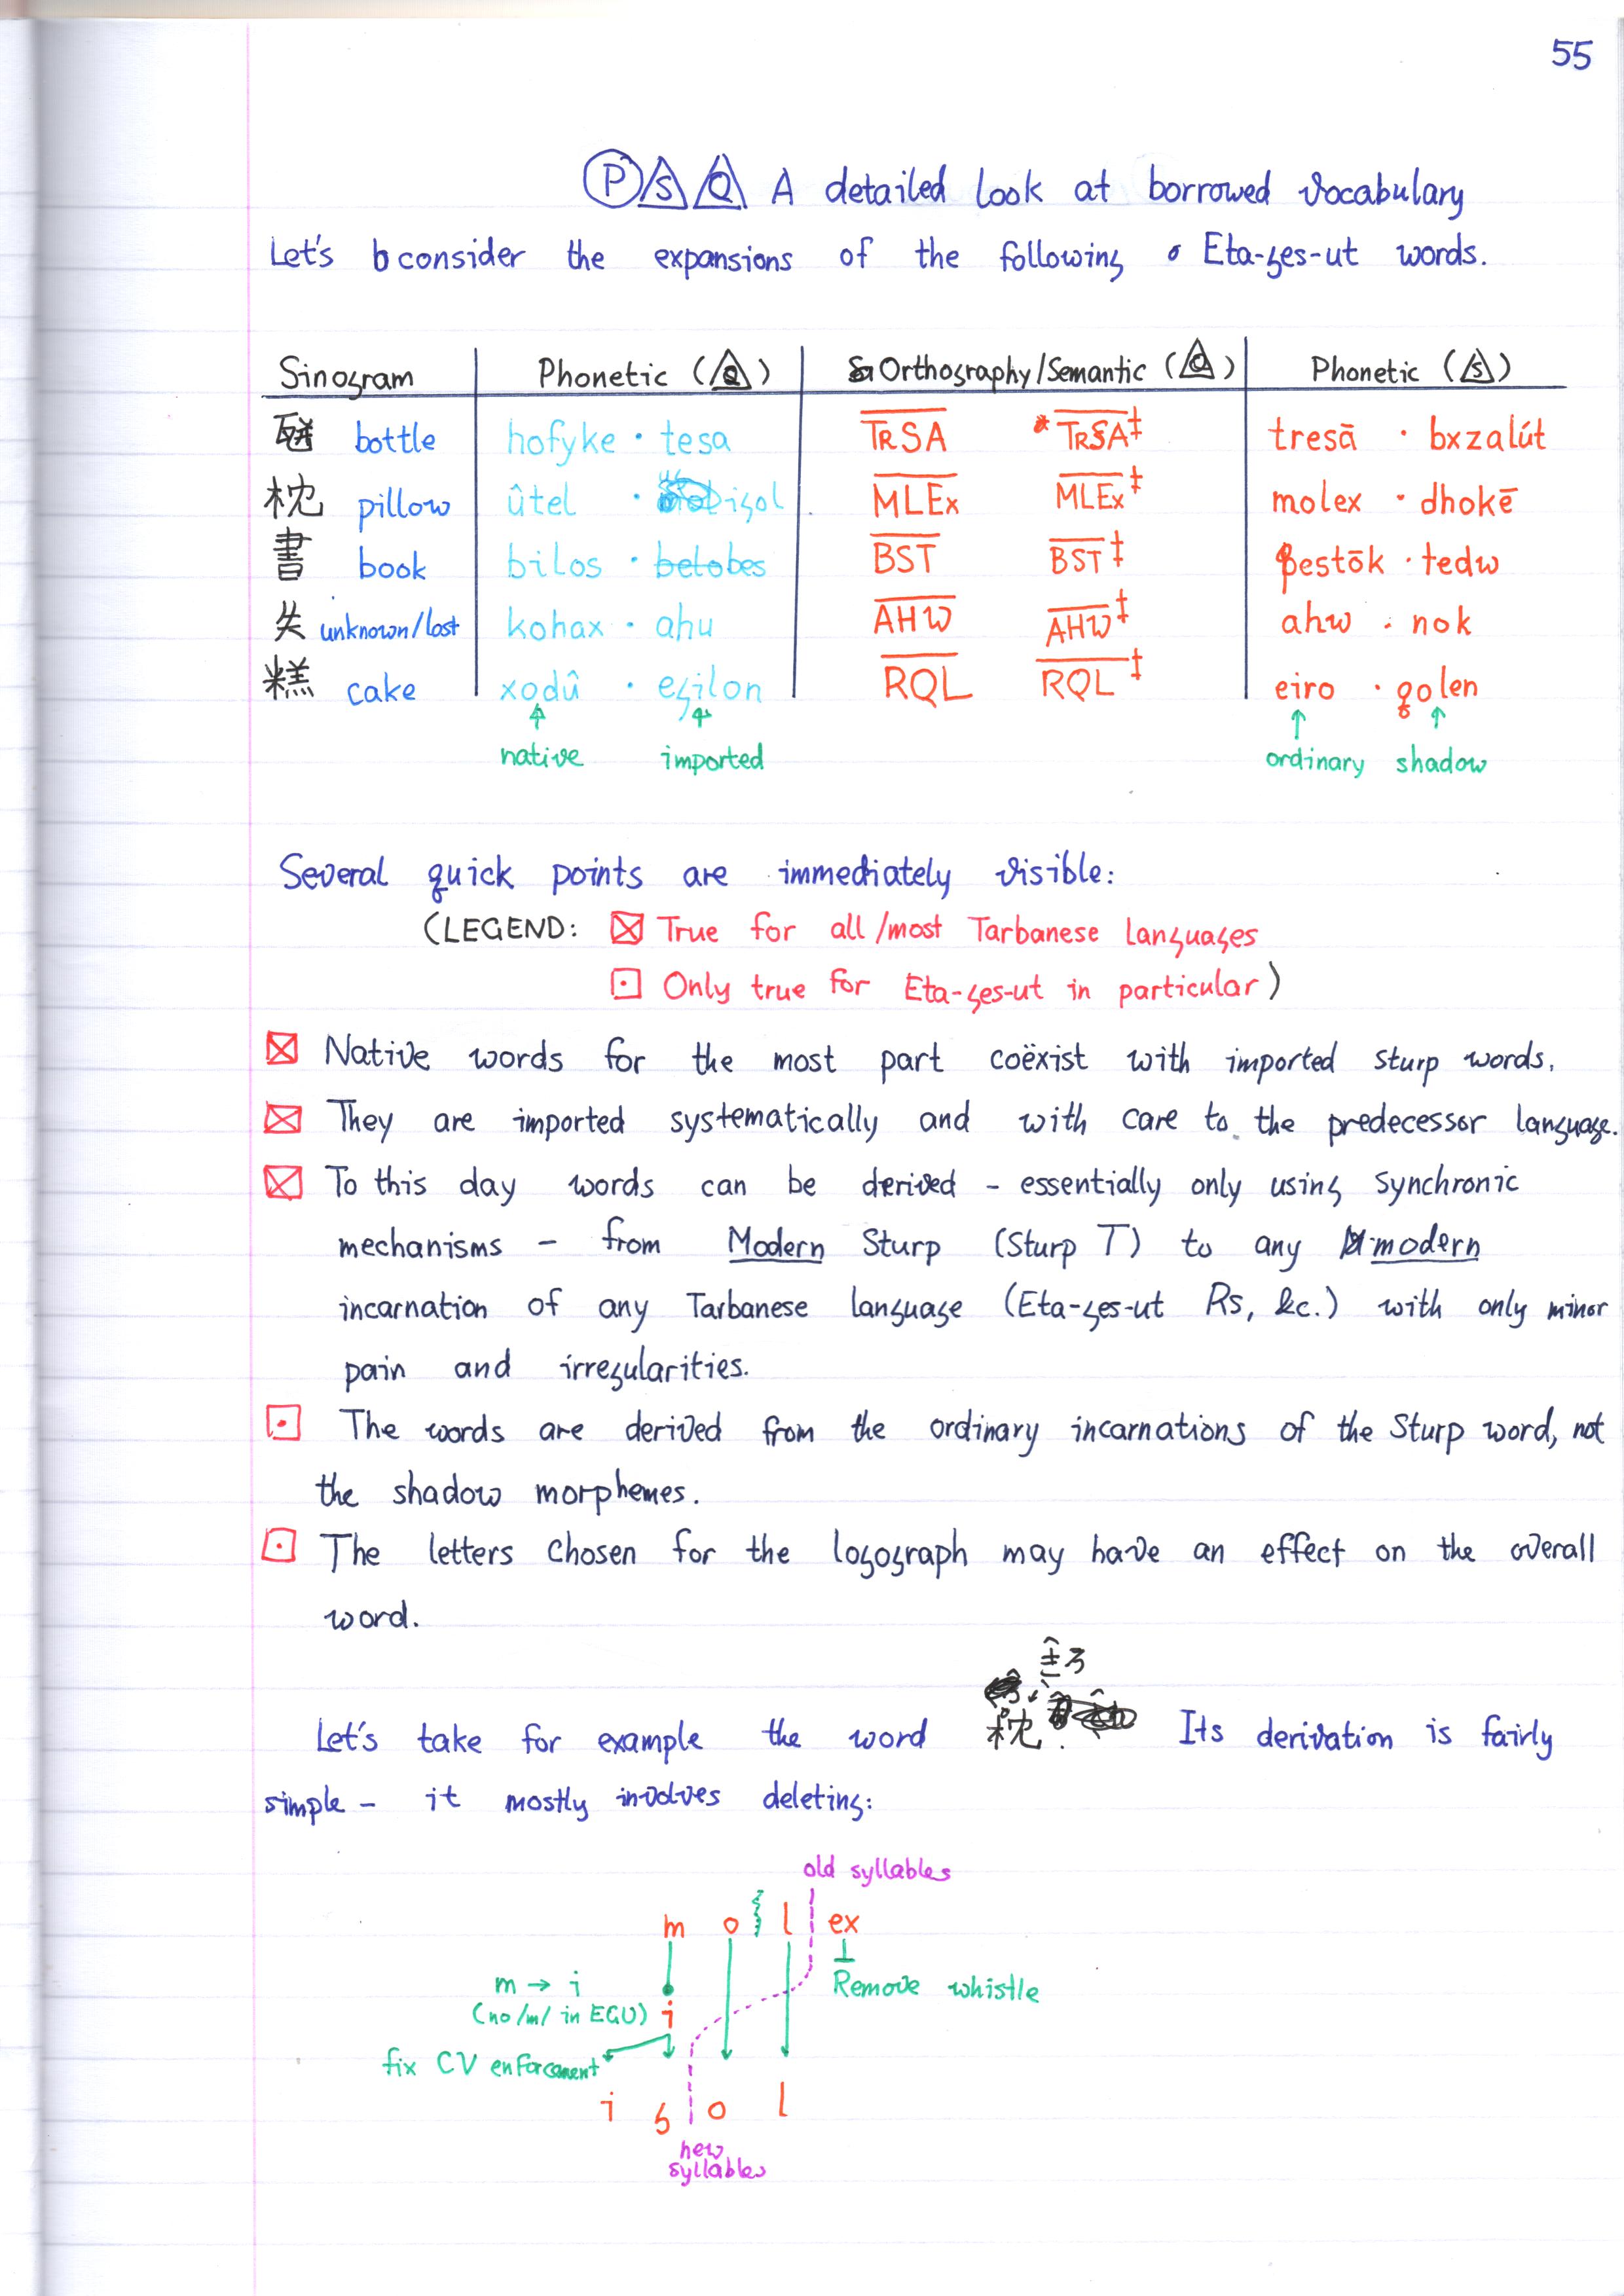 55
Ⓟ Ⓢ Ⓠ A detailed look at borrowed vocabulary
Let's consider the expansions of the following Eta-ges-ut words.
Sinogram Phonetic (Q) Orthography/Semantic (Q) Phonetic (S)
bottle hofyke · tesa TRSA *TRSA‡ tresā · bxzalút
枕 pillow ûtel · igol MLEx MLEx‡ molex · dhokē
書 book bilos · betobes BST BST‡ pestōk · tedw
失 unknown/lost kohax · ahu AHW AHW‡ ahw · nok
糕 cake xodû · egilon RQL RQL‡ eiro · qolen
↑ ↑ ↑ ↑
native imported ordinary shadow
Several quick points are immediately visible:
(LEGEND: ☒ True for all/most Tarbanese languages
⊡ Only true for Eta-ges-ut in particular)
☒ Native words for the most part coëxist with imported sturp words.
☒ They are imported systematically and with care to the predecessor language.
☒ To this day words can be derived – essentially only using synchronic
mechanisms – from Modern Sturp (Sturp T) to any modern
incarnation of any Tarbanese language (Eta-ges-ut Rs, &c.) with only minor
pain and irregularities.
⊡ The words are derived from the ordinary incarnations of the Sturp word, not
the shadow morphemes.
⊡ The letters chosen for the logograph may have an effect on the overall
word.
Let's take for example the word 枕. Its derivation is fairly
simple – it mostly involves deleting:
old syllables
m o l ex
m → i
Remove whistle
(no /m/ in EGU) i
fix CV enforcement
i g o l
new
syllables